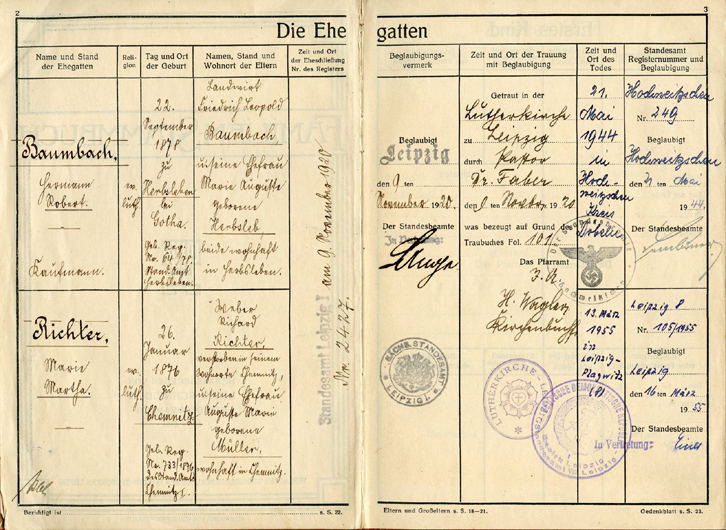 2
3
Die Ehegatten
Name und Stand
der Ehegatten
Reli-
gion
Tag und Ort
der Geburt
Namen, Stand und
Wohnort der Eltern
Zeit und Ort
der Eheschließung
Nr. des Registers
Beglaubigungs-
vermerk
Zeit und Ort der Trauung
mit Beglaubigung
Zeit und
Ort des
Todes
Standesamt
Registernummer und
Beglaubigung
Baumbach,
Hermann
Robert.
Kaufmann.
ev.
luth.
22.
September
1878
zu
Herbsleben
bei
Gotha.
Geb. Reg.
No. 64/78.
Stand. Amt
Herbsleben.
Landwirt
Friedrich Leopold
Baumbach,
u. seine Ehefrau
Marie Auguste
geborene
Herbsleb
beide wohnhaft
in Herbsleben.
Standesamt Leipzig I
am 9. November 1920
Nr. 2427.
Beglaubigt
Leipzig
den 9 ten
November 1920.
Der Standesbeamte
In Vertretung:
Getraut in der
Lutherkirche
zu Leipzig
durch Pastor
Dr. Faber
den 9 Novbr. 1920
was bezeugt auf Grund des
Traubuches Fol. 101
Das Pfarramt
I. A.
H. Wagler
Kirchenbuchf
21.
Mai
1944
in
Hoch-
weitzschen
Kreis
Döbeln
Hochweitzschen
Nr. 249
Beglaubigt
Hochweitzschen
den 21 ten Mai
1944.
Der Standesbeamte
Richter,
Marie
Martha.
ev.
luth.
26.
Januar
1876
zu
Chemnitz
Geb. Reg
No. 733/1876
des Stand. Amt
Chemnitz
Weber
Richard
Richter,
verstorben in seinem
Wohnorte Chemnitz,
u. seine Ehefrau
Auguste Marie
geborene
Müller,
wohnhaft in Chemnitz.
SÄCHS. STANDESAMT
LEIPZIG I.
LUTHERKIRCHE
13. März
1955
in
Leipzig-
Plagwitz
Leipzig 8
Nr. 105/1955
Beglaubigt
Leipzig
den 16 ten März
1955
Der Standesbeamte
In Vertretung:
Berichtigt ist
s. S. 22.
Eltern und Großeltern s. S. 18—21.
Gedenkblatt s. S. 23.